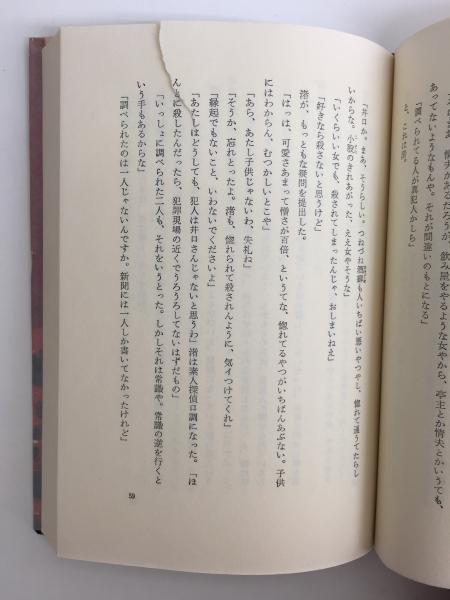 えろ、情夫があるだろうが、飲み屋をや
あってないようなもんや。それが間違いのもとになる」
るような女やから、亭主とか情夫とかいうても、
「調べられてる人が真犯人かしら」
と、これは渚。
「井口か。まあ、そうらしい。つねづね酒癖も人いちばい悪いやつやし、惚れて通うてたらし
いからな。小股のきれあがった、ええ女やそうな」
「いくらいい女でも、殺されてしまったんじゃ、おしまいねえ」
「好きなら殺さないと思うけど」
渚が、もっともな疑問を提出した。
「はっは、可愛さあまって憎さが百倍、というてな、惚れてるやつがいちばんあぶない。子供
にはわからん、むつかしいとこや」
「あら、あたし子供じゃないわ、失礼ね」
「そうか、忘れとったよ。渚も、惚れられて殺されんように、気イつけてくれ」
「縁起でもないこと、いわないでくださいよ」
「あたしはどうしても、犯人は井口さんじゃないと思うわ」渚は素人探偵口調になった。「ほ
んとに殺したんだったら、犯罪現場の近くでうろうろしてないはずだもの」
「いっしょに調べられた二人も、それをいうとった。しかしそれは常識や。常識の逆を行くと
いう手もあるからな」
「調べられたのは一人じゃないんですか。新聞には一人しか書いてなかったけれど」
59